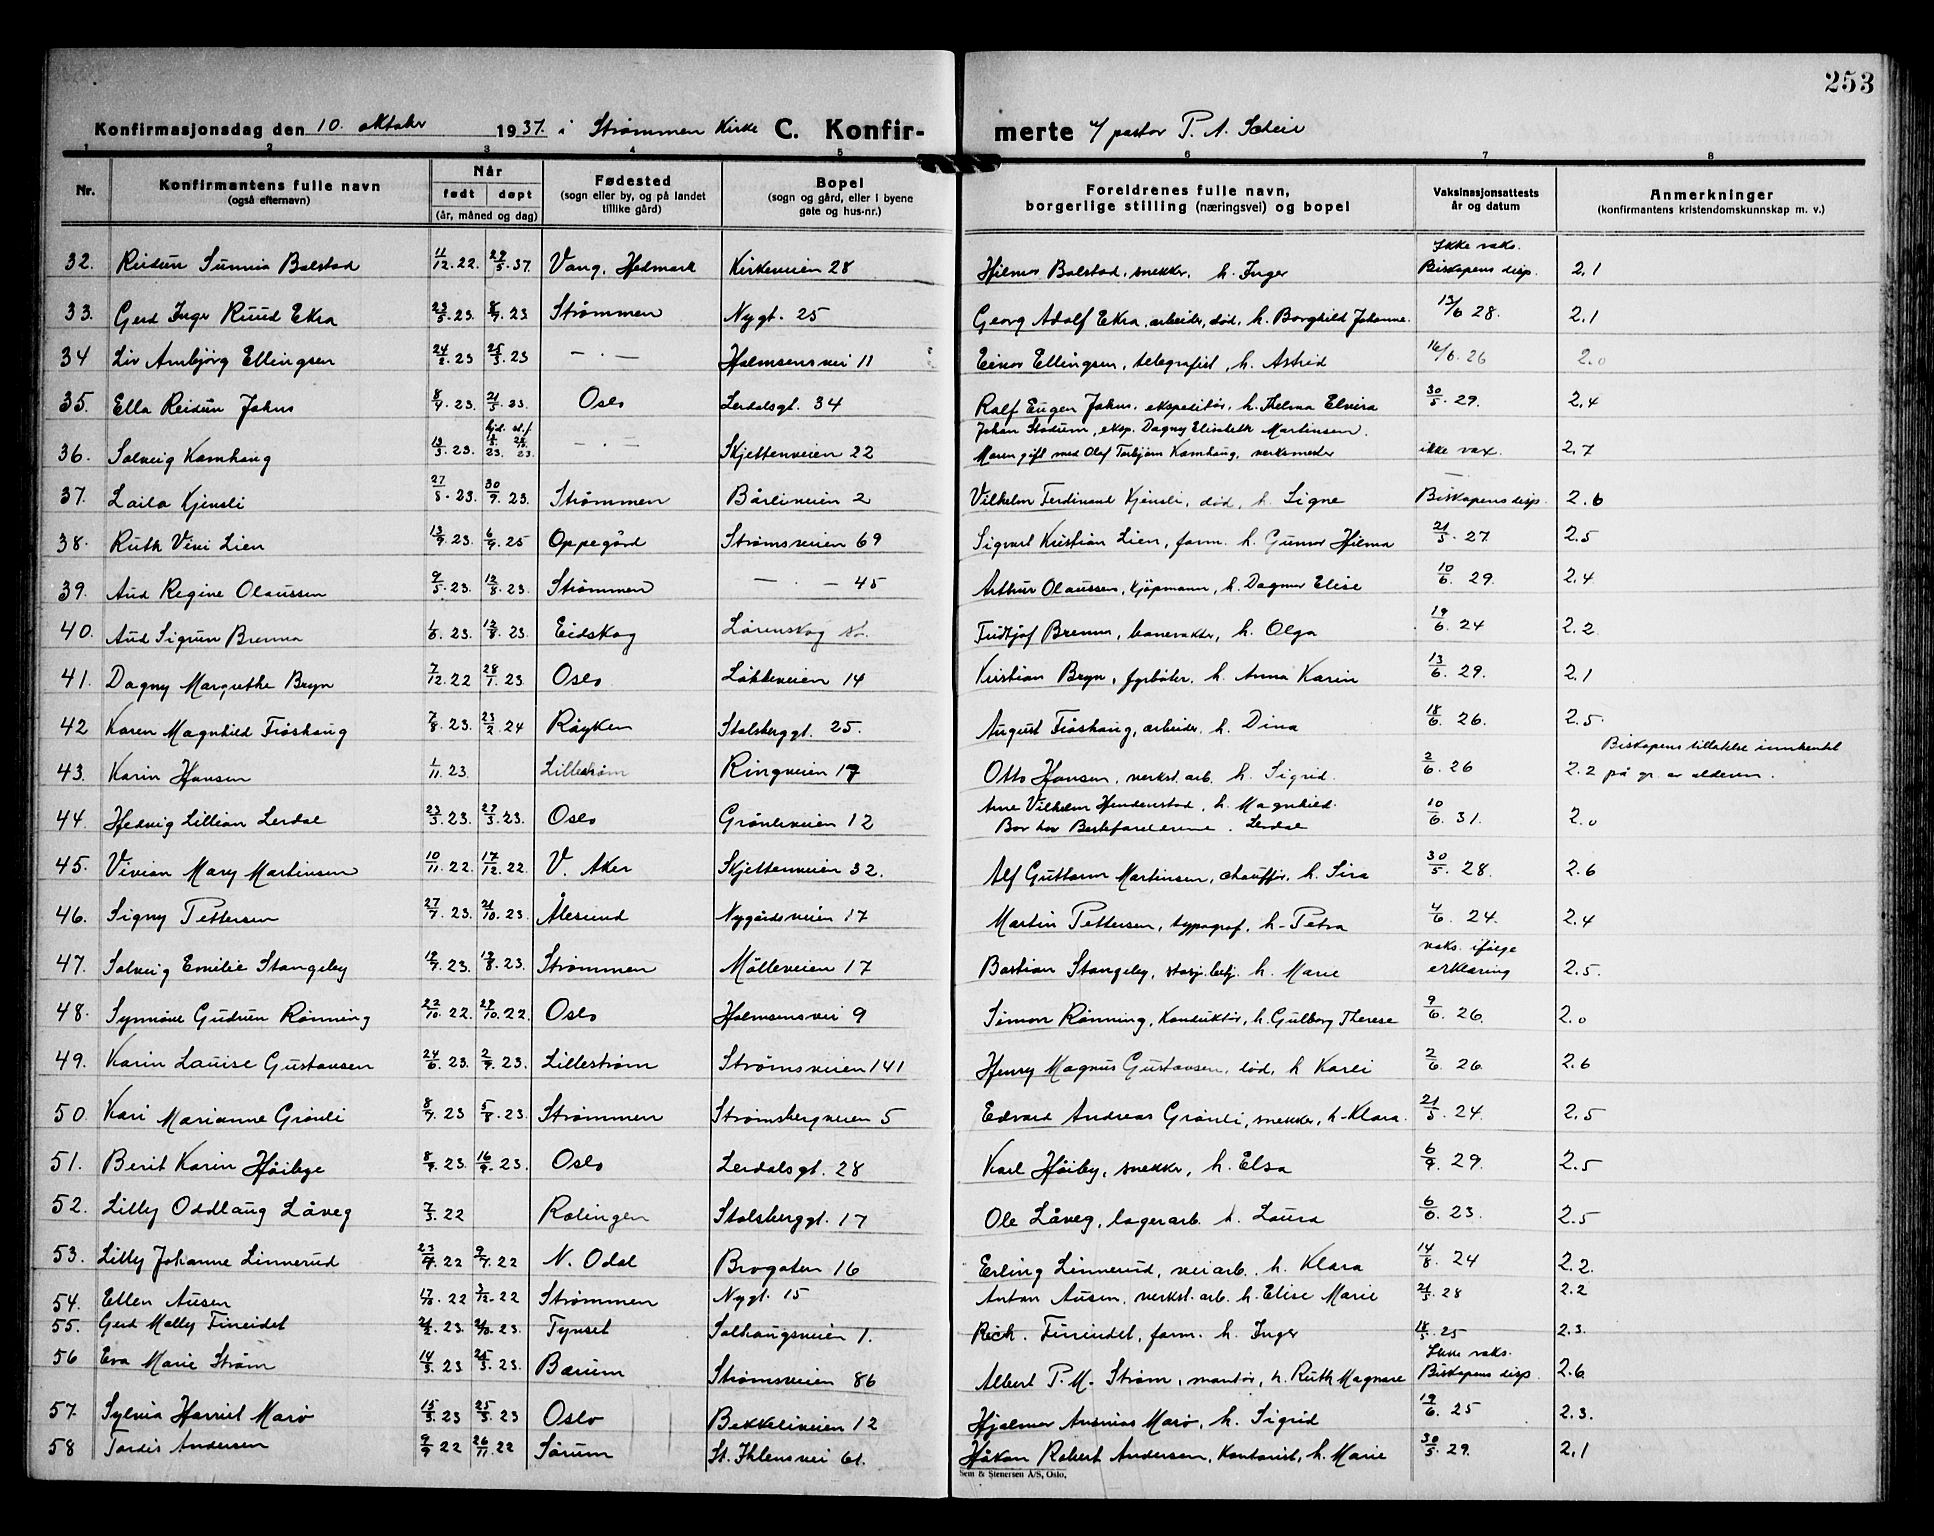 253
Konfirmasjonsdag den 10. oktober 1937. i Strømmen Kirke C. Konfirmerte v/ pastor P. A. Scheie
1 2 3 4 5 6 7 8
Nr. Konfirmantens fulle navn (også efternavn) Når født døpt (år, måned og dag) Fødested (sogn eller by, og på landet tillike gård) Bopel (sogn og gård, eller i byene gate og hus-nr.) Foreldrenes fulle navn, borgerlige stilling (næringsvei) og bopel Vaksinasjonsattests år og datum Anmerkninger (konfirmantens kristendomskunnskap m. v.)
32. Reidun Sunniva Balstad 11/12.22. 29/5.37. Vang, Hedmark Kirkeveien 28 Hilmar Balstad, snekker, h. Inger Ikke vaks. Biskapens disp. 2,1
33. Gerd Inger Ruud Ekra 23/5.23. 8/7.23 Strømmen Nygt. 25 Georg Adolf Ekra, arbeider, død, h. Borghild Johanne. 13/6 28. 2,1
34 Liv Arnbjörg Ellingsen 24/2.23 25/3.23 — · — Holmsensvei 11 Einar Ellingsen, telegrafist, h. Astrid 16/6. 26 2.0
35. Ella Reidun Jahns 8/9.23. 21/5.33. Oslo Lerdalsgt. 34 Ralf Eugen Jahns, ekspeditör, h. Thelma Elvira 30/5. 29. 2,4
36. Solveig Kamhaug 13/3.23. — · — Skjettenveien 22 Johan Stadum, eksp. Dagny Elisabeth Martinsen. Moren gift med Olaf Torbjørn Kamhaug, verksmester ikke vax. 2,7
37. Laila Kjensli 27/8.23. 30/9.23. Strømmen Bårliveien 2 Vilhelm Ferdinand Kjensli, död, h. Signe — Biskapens disp. 2.6
38. Ruth Vivi Lien 13/9.23. 6/9.25 Oppegård Strømsveien 69 Sigvart Kristian Lien, form. h. Gunvor Hilma 21/5. 27. 2.5
39. Aud Regine Olaussen 9/5.23. 12/8.23. Strømmen — · — 45 Arthur Olaussen, kjöpmann, h. Dagmar Elise 10/6. 29. 2.4
40. Aud Sigrun Brenna 1/6.23. 12/8.23. Eidskog Lörenskog st. Fridtjof Brenna, banevokter, h. Olga 19/6. 24 2.2
41. Dagny Margrethe Bryn 7/12.22 28/1.23. Oslo Løkkeveien 14 Kristian Bryn, fyrböter, h. Anna Karin 13/6. 29. 2,1
42 Karen Magnhild Fiöshaug 7/8.23. 23/2.24 Røyken Stalsberggt. 25. August Fiöshaug, arbeider, h. Dina 18/6. 26. 2.5.
43. Karin Hansen 1/11.23. Lillestrøm Ringveien 17 Otto Hansen, verkst. arb. h. Sigrid. 2/6. 26 2.2 Biskapens tillatelse innhentet på gr. av alderen.
44. Hedvig Lillian Lerdal 23/3.23. 27/3.23. Oslo Grönliveien 12 Arne Vilhelm Hendenstad, h. Magnhild. Bor hos Besteforeldrene. Lerdal 10/6. 31. 2.0
45. Vivian Mary Martinsen 10/11.22. 17/12.22. V. Aker Skjettenveien 32. Alf Guttorm Martinsen, chauffør, h. Sira 30/5. 28. 2.6
46. Signy Pettersen 27/7.23. 21/10.23. Ålesund Nygårdsveien 17 Martin Pettersen, typograf, h. Petra 4/6. 24. 2.4
47. Solveig Emilie Stangeby 12/7.23. 19/8.23. Strømmen Mölleveien 17 Bastian Stangeby, stasj. betj. h. Marie vaks. ifölge erklæring 2.5.
48. Synnöve Gudrun Rönning 22/10.22. 29/10.22. Oslo Holmsensvei 9 Simon Rönning, Konduktör, h. Gulborg Therese 9/6. 26. 2.0
49. Karin Lauise Gustavsen 24/6.23. 2/9.23. Lillestrøm Strømsveien 141 Henry Magnus Gustavsen, död, h Karli 2/6. 26. 2.6
50. Kari Marianne Grönli 8/7.23 5/8.23. Strømmen Strømsbergveien 5 Edvard Andreas Grönli, snekker, h. Klara. 21/5. 24. 2.5
51. Berit Karin Höibye 8/7.23. 16/9.23. Oslo Lerdalsgt. 28 Karl Höiby, snekker, h. Elsa 6/9. 29. 2.5
52. Lilly Oddlaug Låveg 7/3.22 Rælingen Stalsberggt. 17 Ole Låveg, lagerarb. h. Laura 6/6. 23. 2.5
53. Lilly Johanne Linnerud 23/4.22 9/7.22 N. Odal Brogaten 16 Erling Linnerud, veiarb. h. Klara 14/8. 24 2.2.
54. Ellen Ausen 17/10.22 3/12.22 Strømmen Nygt. 15 Anton Ausen, verkst. arb. h. Elise Marie 21/5. 28 2.2
55. Gerd Molly Fineidet 21/2.23. 21/10.23. Tynset Solhaugsveien 1. Rich. Fineidet, form. h. Inger 18/5. 25 2.3.
56 Eva Marie Strøm 14/3.23 25/3.23. Bærum Strømsveien 86 Albert P. M. Strøm, montør, h. Ruth Magnare Ikke vaks. Biskapens disp. 2.6
57. Sylvia Harriet Marö 15/3.23 25/3.23 Oslo Bekkeliveien 12 Hjalmar Ananias Marö, h. Sigrid 19/6. 25 2.3.
58 Tordis Andersen 9/9.22 26/11.22 Sörum St. Ihlensvei 61. Håkon Robert Andersen, Kontorist, h. Marie 30/5. 29. 2,1
Sem & Stenersen A/S, Oslo.